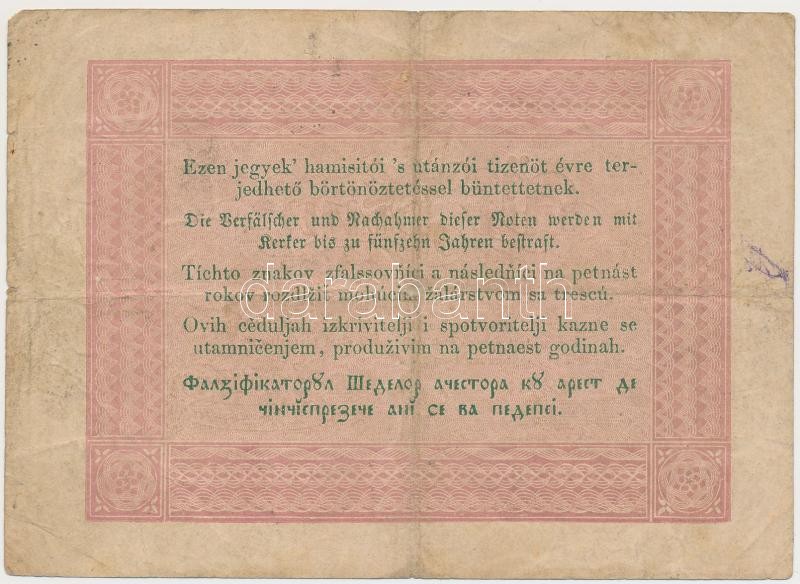 Ezen jegyek’ hamisitói ’s utánzói tizenöt évre ter-
jedhető börtönöztetéssel büntettetnek.
Die Verfälscher und Nachahmer dieser Noten werden mit
Kerker bis zu fünfzehn Jahren bestraft.
Tíchto znakov zfalssovňíci a následňíci na petnást
rokov rozdĺžit mohúcím žalárstvom sa trescú.
darabanth
Ovih cĕduljah izkrivitelji i spotvoritelji kazne se
utamničenjem, produživim na petnaest godinah.
Фалзіфікаторꙋл Шеделор ачестора кꙋ арест де
чінчіспрезече ані се ва педепсі.